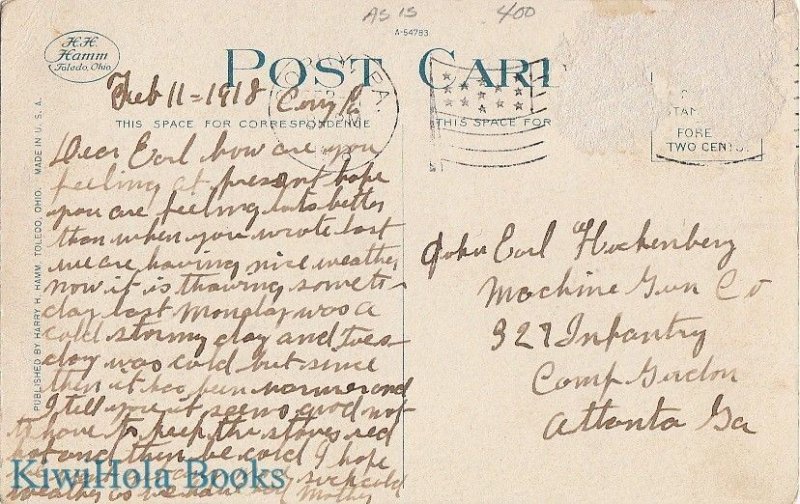 AS IS
400
A-54783
H.H.
Hamm
Toledo, Ohio.
POST CAR
Feb 11 = 1918 Corry Pa
PA.
THIS SPACE FOR CORRESPONDENCE
THIS SPACE FOR
STAM
FORE
TWO CENTS
PUBLISHED BY HARRY H. HAMM, TOLEDO, OHIO. MADE IN U. S. A.
Dear Earl how are you
feeling at present hope
you are feeling lots better
than when you wrote last
we are having nice weather
now it is thawing some to-
day last Monday was a
cold stormy day and Tues-
day was cold but since
then it has been warmer and
I tell you it seems good not
to have to keep the stoves red
hot and then be cold I hope
such cold
weather as we have had Mother
John Earl Hockenberg
Machine Gun Co
327 Infantry
Camp Gordon
Atlanta Ga
KiwiHola Books